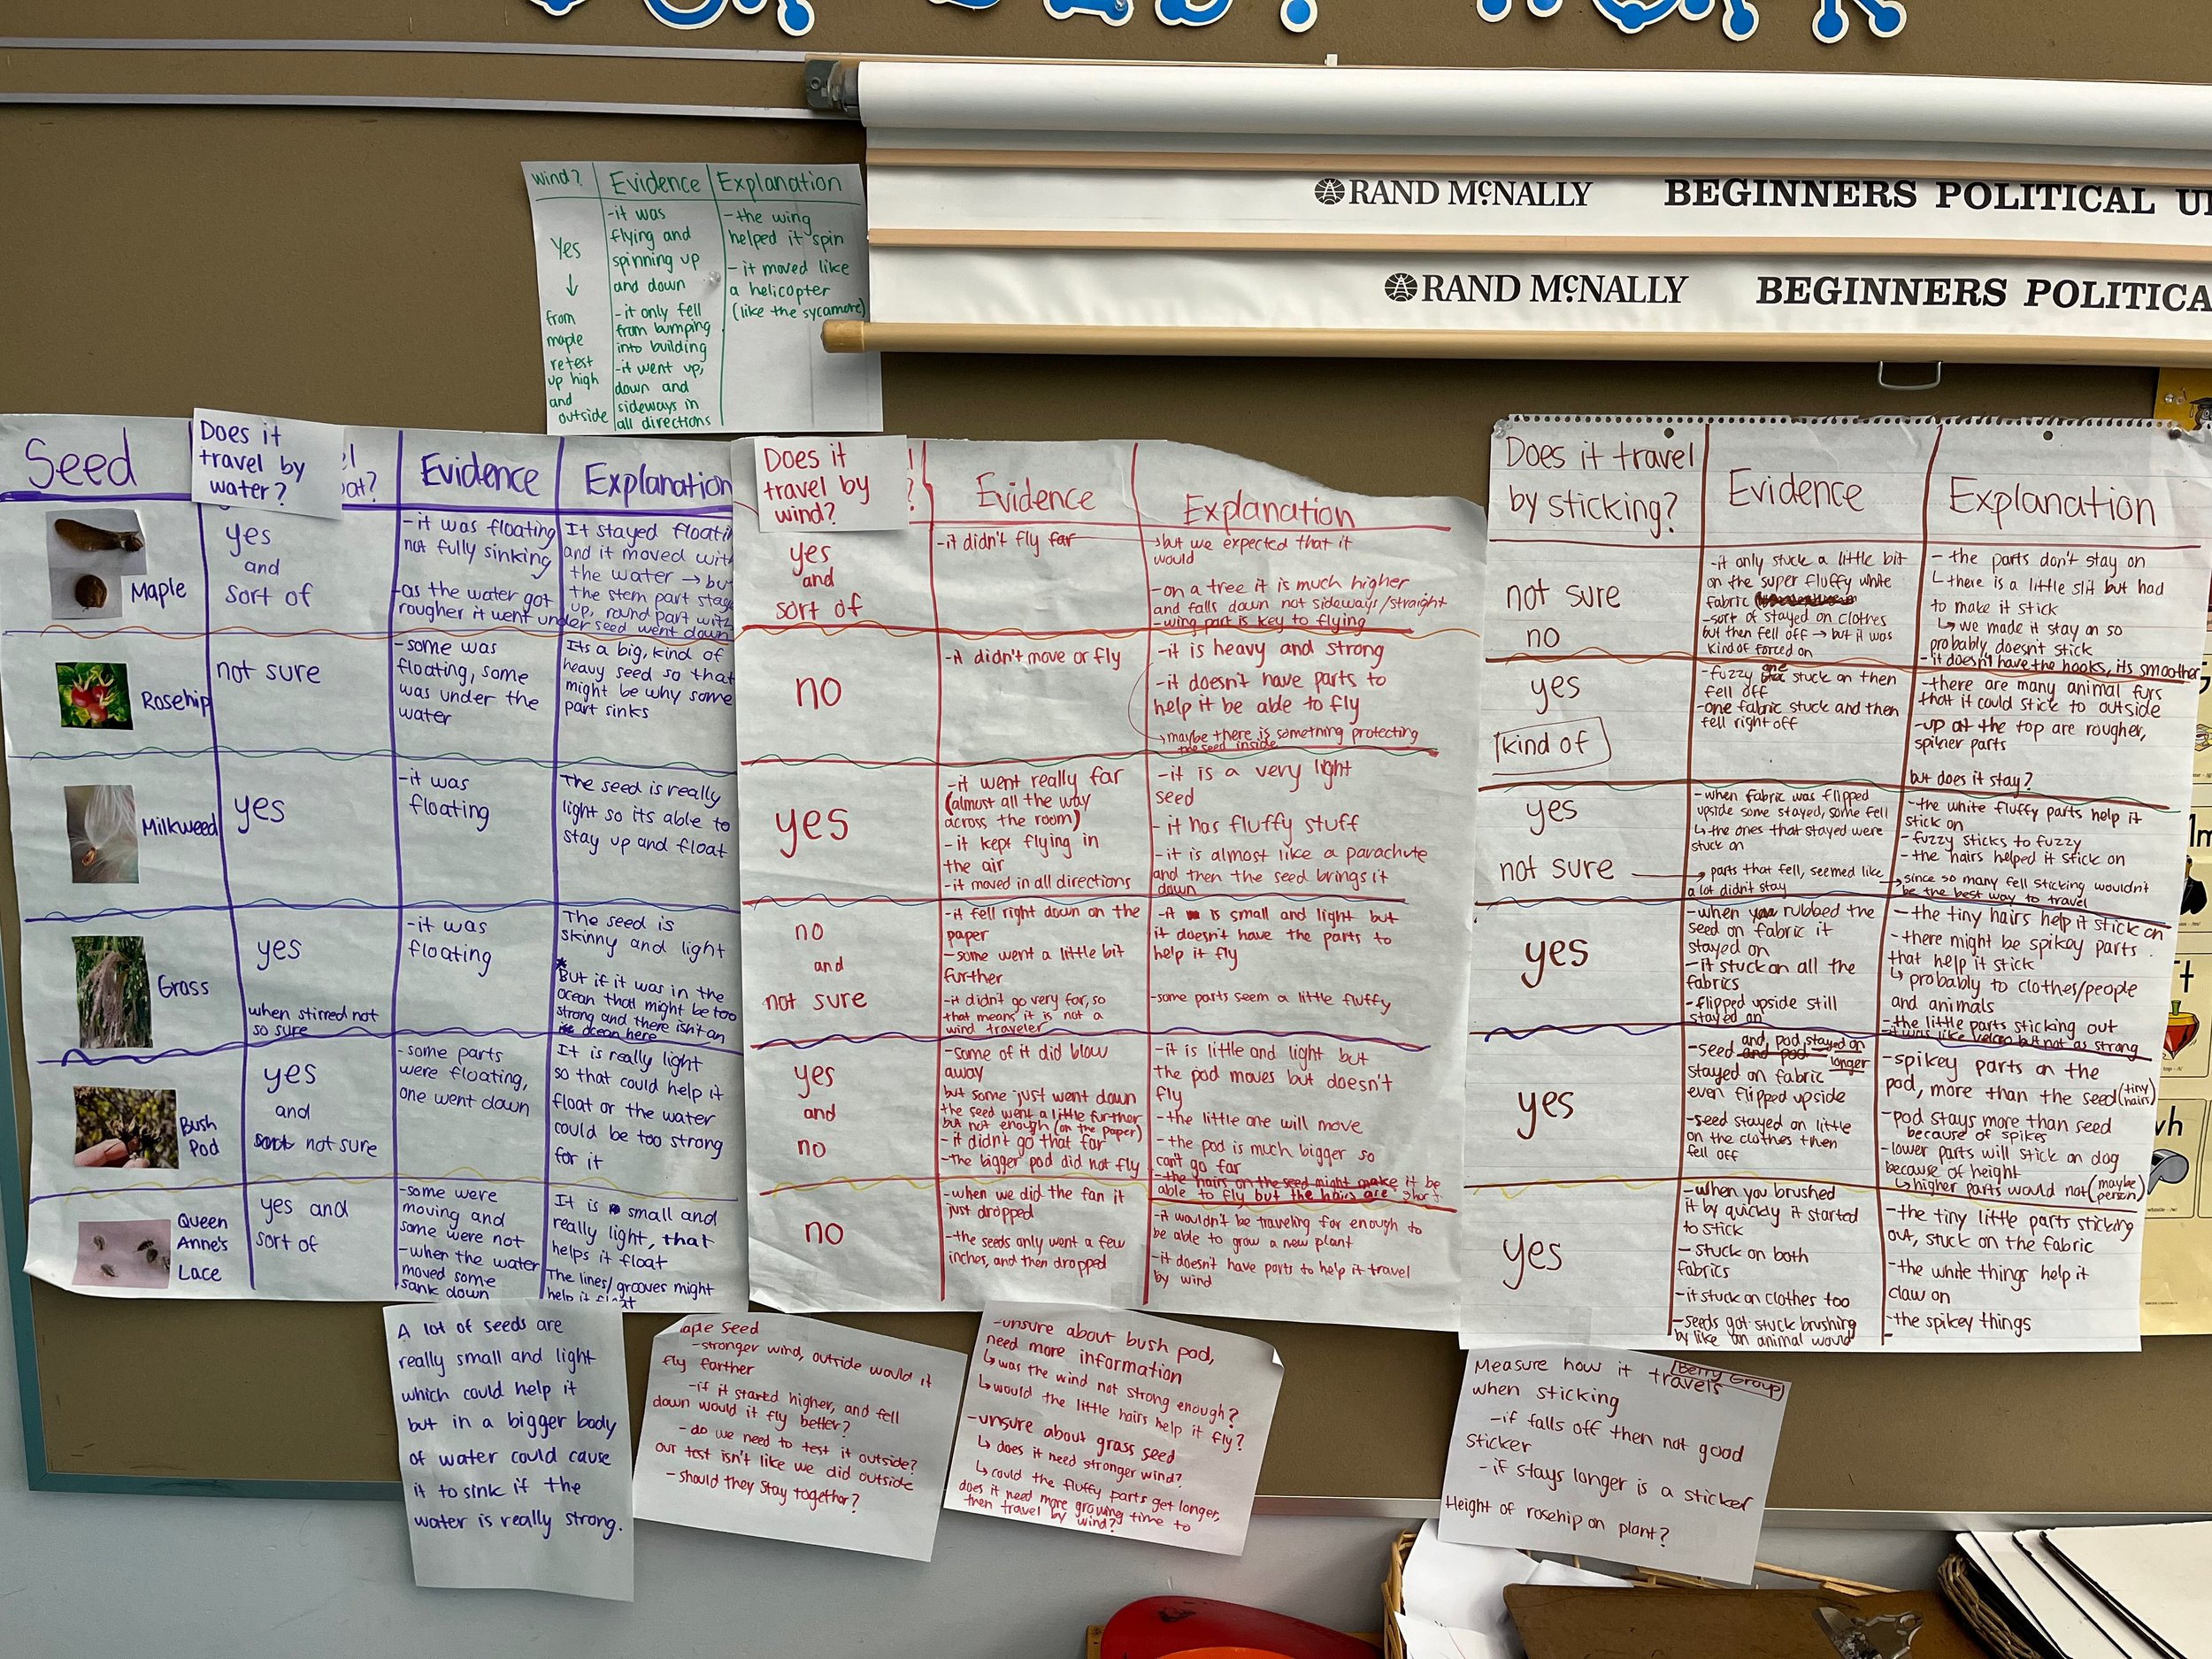 RAND McNALLY BEGINNERS POLITICAL
RAND McNALLY BEGINNERS
wind?
Yes
↓
from
maple
retest
up high
and
outside
Evidence
-it was
flying and
spinning up
and down
-it only fell
from bumping
into building
-it went up,
down and
sideways in
all directions
Explanation
-the wing
helped it spin
-it moved like
a helicopter
(like the sycamore)
Seed
Does it
travel by
water?
Evidence
Explanation
Maple
yes
and
sort of
-it was floating
not fully sinking
-as the water got
rougher it went under
It stayed
and it moved
the water → but
the stem part
up, round part with
seed went down
Rosehip
not sure
-some was
floating, some
was under the
water
Its a big, kind of
heavy seed so that
might be why some
part sinks
Milkweed
yes
-it was
floating
The seed is really
light so its able to
stay up and float
Grass
yes
when stirred not
so sure
-it was
floating
The seed is
skinny and light
*
But if it was in the
ocean that might be too
strong and there isn't an
ocean here
Bush
Pod
yes
and
not sure
-some parts
were floating,
one went down
It is really light
so that could help it
float or the water
could be too strong
for it
Queen
Anne's
Lace
yes and
sort of
-some were
moving and
some were not
-when the water
moved some
sank down
It is small and
really light, that
helps it float
The lines/grooves might
help it float
Does it
travel by
wind?
Evidence
Explanation
yes
and
sort of
-it didn't fly far
→but we expected that it
would
-on a tree it is much higher
and falls down not sideways/straight
-wing part is key to flying
no
-it didn't move or fly
-it is heavy and strong
-it doesn't have parts to
help it be able to fly
→maybe there is something protecting
the seed inside
yes
-it went really far
(almost all the way
across the room)
-it kept flying in
the air
-it moved in all directions
-it is a very light
seed
-it has fluffy stuff
-it is almost like a parachute
and then the seed brings it
down
no
and
not sure
-it fell right down on the
paper
-some went a little bit
further
-it didn't go very far, so
that means it is not a
wind traveler
-it is small and light but
it doesn't have the parts to
help it fly
-some parts seem a little fluffy
yes
and
no
-some of it did blow
away
but some just went down
the seed went a little further
but not enough (on the paper)
-it didn't go that far
-the bigger pod did not fly
-it is little and light but
the pod moves but doesn't
fly
-the little one will move
-the pod is much bigger so
can't go far
-the hairs on the seed might make it be
able to fly but the hairs are short
no
-when we did the fan it
just dropped
-the seeds only went a few
inches, and then dropped
-it wouldn't be traveling far enough to
be able to grow a new plant
-it doesn't have parts to help it travel
by wind
Does it travel
by sticking?
Evidence
Explanation
not sure
no
-it only stuck a little bit
on the super fluffy white
fabric
-sort of stayed on clothes
but then fell off → but it was
kind of forced on
-the parts don't stay on
↳there is a little slit but had
to make it stick
↳we made it stay on so
probably doesn't stick
-it doesn't have the hooks, its smoother
yes
kind of
-fuzzy one stuck on then
fell off
-one fabric stuck and then
fell right off
-there are many animal furs
that it could stick to outside
-up at the top are rougher,
spikier parts
but does it stay?
yes
not sure
-when fabric was flipped
upside some stayed, some fell
↳the ones that stayed were
stuck on
→parts that fell, seemed like
a lot didn't stay
-the white fluffy parts help it
stick on
-fuzzy sticks to fuzzy
-the hairs helped it stick on
→since so many fell sticking wouldn't
be the best way to travel
yes
-when you rubbed the
seed on fabric it
stayed on
-it stuck on all the
fabrics
-flipped upside still
stayed on
-the tiny hairs help it stick on
-there might be spikey parts
that help it stick
↳probably to clothes/people
and animals
-the little parts sticking out
-it was like velcro but not as strong
yes
-seed and pod stayed on longer
stayed on fabric
even flipped upside
-seed stayed on little
on the clothes then
fell off
-spikey parts on the
pod, more than the seed (tiny hairs)
-pod stays more than seed
because of spikes
-lower parts will stick on dog
because of height
↳higher parts would not (maybe person)
yes
-when you brushed
it by quickly it started
to stick
-stuck on both
fabrics
-it stuck on clothes too
-seeds got stuck brushing
by like an animal would
-the tiny little parts sticking
out, stuck on the fabric
-the white things help it
claw on
-the spikey things
-
A lot of seeds are
really small and light
which could help it
but in a bigger body
of water could cause
it to sink if the
water is really strong.
aple Seed
-stronger wind, outside would it
fly farther
-if it started higher, and fell
down would it fly better?
-do we need to test it outside?
our test isn't like we did outside
-should they stay together?
-unsure about bush pod,
need more information
↳was the wind not strong enough?
↳would the little hairs help it fly?
-unsure about grass seed
↳does it need stronger wind?
↳could the fluffy parts get longer,
does it need more growing time to
then travel by wind?
Berry Group
Measure how it travels
when sticking
-if falls off then not good
sticker
-if stays longer is a sticker
Height of rosehip on plant?